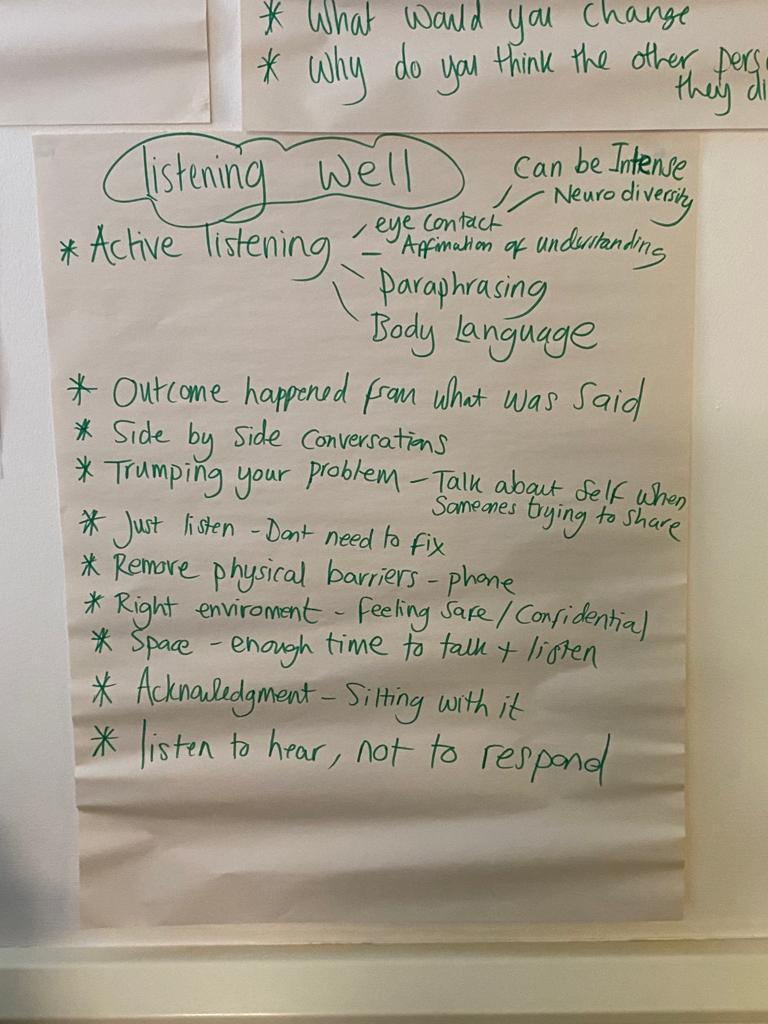 * What would you change
* Why do you think the other pers
they di
listening well
Can be Intense
Neurodiversity
* Active listening
eye contact
Affimation of understanding
Paraphrasing
Body Language
* Outcome happened from what was said
* Side by side conversations
* Trumping your problem - Talk about self when
Someones trying to share
* Just listen - Dont need to fix
* Remove physical barriers - phone
* Right enviroment - feeling safe / Confidential
* Space - enough time to talk + listen
* Acknowledgment - Sitting with it
* listen to hear, not to respond